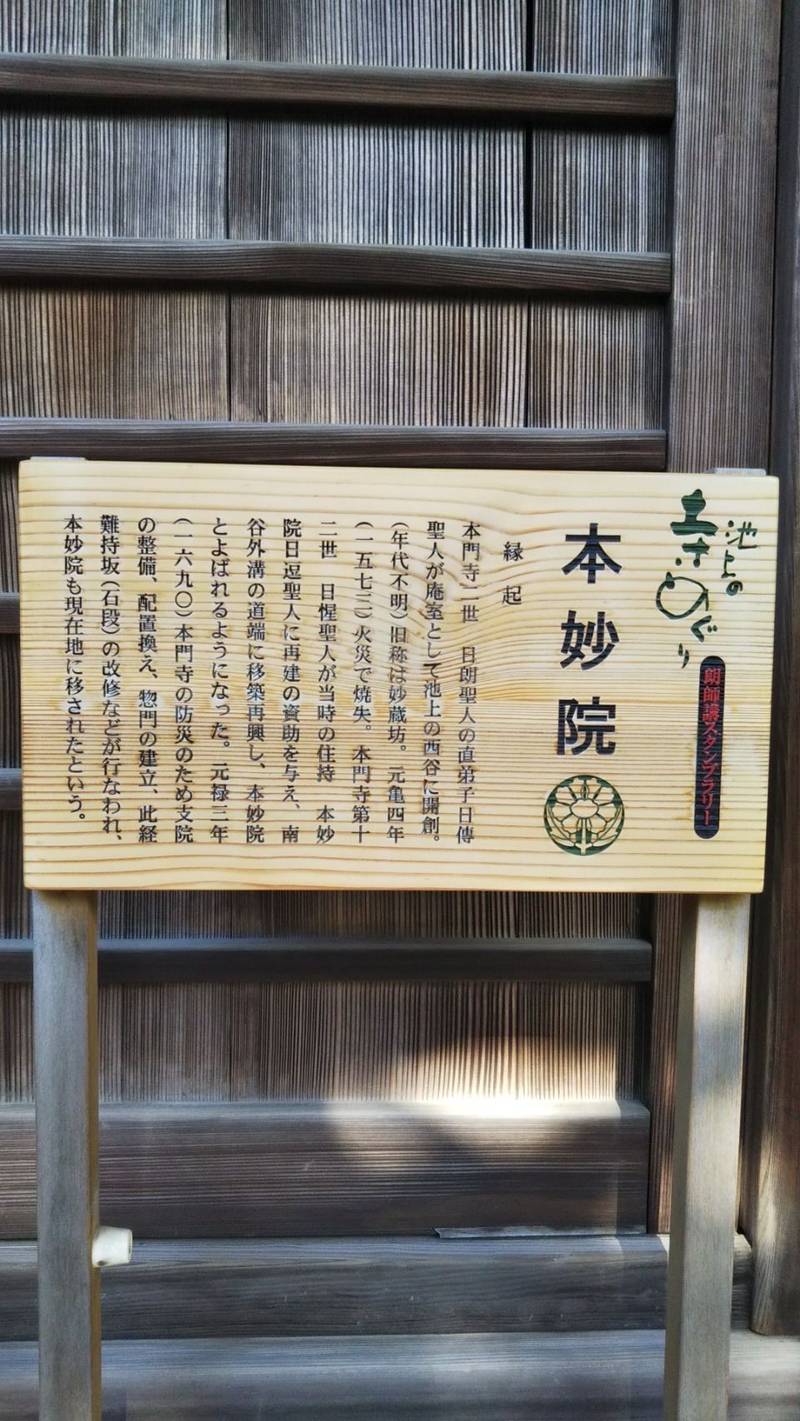 池上の
寺めぐり
朗師講スタンプラリー
本妙院
縁起
本門寺二世　日朗聖人の直弟子日傳
聖人が庵室として池上の西谷に開創。
(年代不明)旧称は妙蔵坊。元亀四年
(一五七三)火災で焼失。本門寺第十
二世　日惺聖人が当時の住持　本妙
院日逗聖人に再建の資助を与え、南
谷外溝の道端に移築再興し、本妙院
とよばれるようになった。元禄三年
(一六九〇)本門寺の防災のため支院
の整備、配置換え、惣門の建立、此経
難持坂(石段)の改修などが行なわれ、
本妙院も現在地に移されたという。